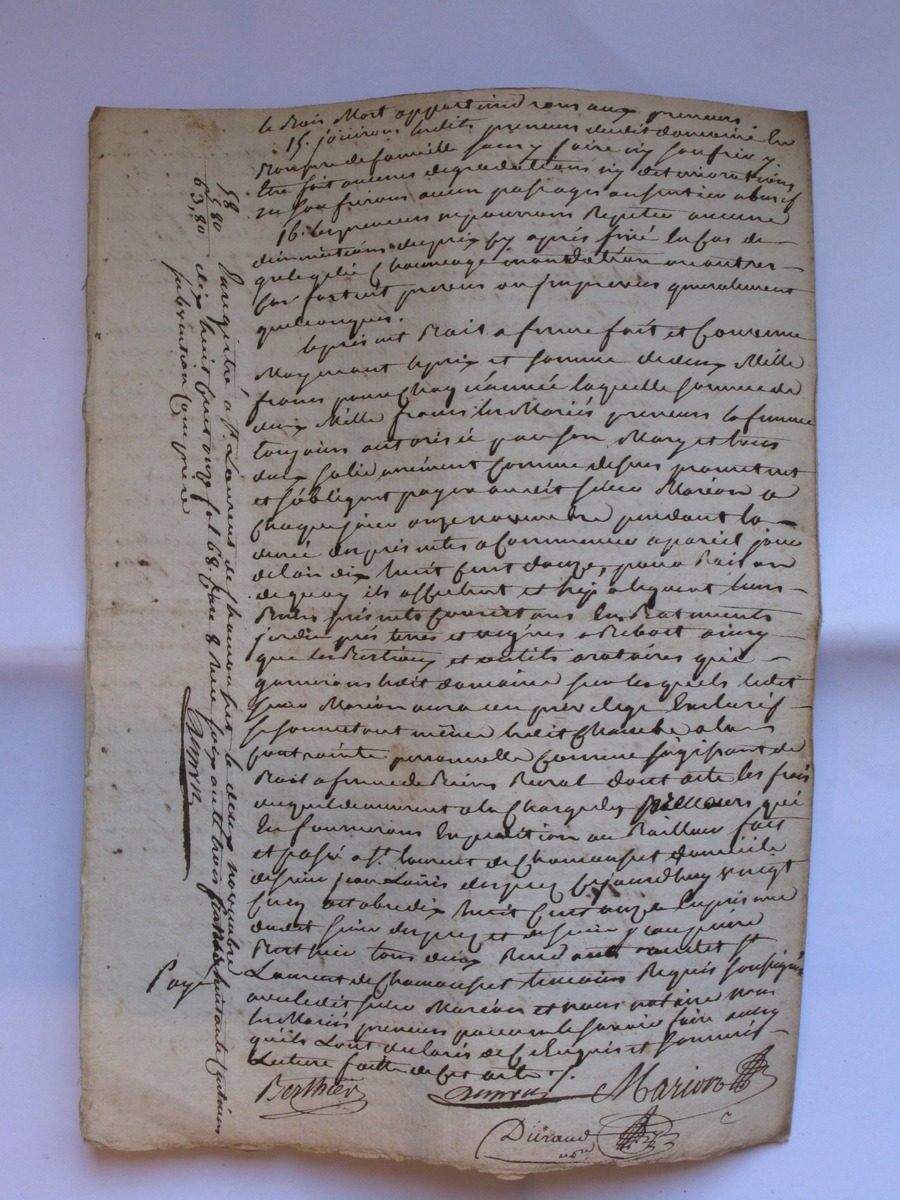 le Bois Mort appartiendront aux preneurs
15. jouiront lesdits preneurs dudit domaine en
Bon pere de famille sans y faire ny souffrir y
etre fait aucunes degradations ny deteriorations
ny souffriront aucun passages ou sentier abusif
16. les preneurs ne pourront Repeter aucune
diminutions du prix cy après fixé en Cas de
grele gelée Chaumeage inondation ou autres
Cas fortuit prevus ou imprevus generalement
quelconques.
le present Bail a ferme fait et Convenu
Moyenant le prix et somme de deux Mille
francs pour Chaque année laquelle somme de
deux Mille francs les Mariés preneurs la femme
toujours autorisée par son Mary et tous
deux solidairement Comme dessus promettent
et s'obligent payer audit sieur Marion a
Chaque jour onze novembre pendant la
durée des presentes a Commencer a pareil jour
de l'an dix huit Cent douze, pour Raison
de quoy ils affectent et hypothequent leurs
Biens presents Consistans En Batiments
jardin prés terres et vignes a Rebait ainsy
que les Bestiaux et outils aratoires qui
garniront ledit domaine sur lesquels ledit
sieur Marion aura un privilege Exclusif
se soumettant même ledit Chambe a la
Contrainte personnelle Comme s'agissant de
Bail a ferme de Biens Rural dont acte les frais
duquel demeurent a la Charge des preneurs qui
En fourniront Expedition au Bailleur fait
et passé a St. laurent de Chamousset domicile
de sieur jean Louis Duprez Ce jourd'huy vingt
Cinq octobre dix huit Cent onze En presence
dudit sieur Duprez et de sieur
Berthier tous deux audit St
Laurent de Chamousset temoins Requis soussignés
avec ledit sieur Marion et nous notaire non
les Mariés preneurs pour ne le savoir faire ainsy
qu'ils l'ont declaré de Ce Enquis et sommés
Lecture faitte de Cet acte
Berthier
Marion
Durand
nore
58
5,80
63,80
Enregistré a St. Laurent de Chamousset le deux novembre
dix huit Cent onze fol 68. Case 8 Reçu soixante trois francs huitante Centimes
subvention Comprise